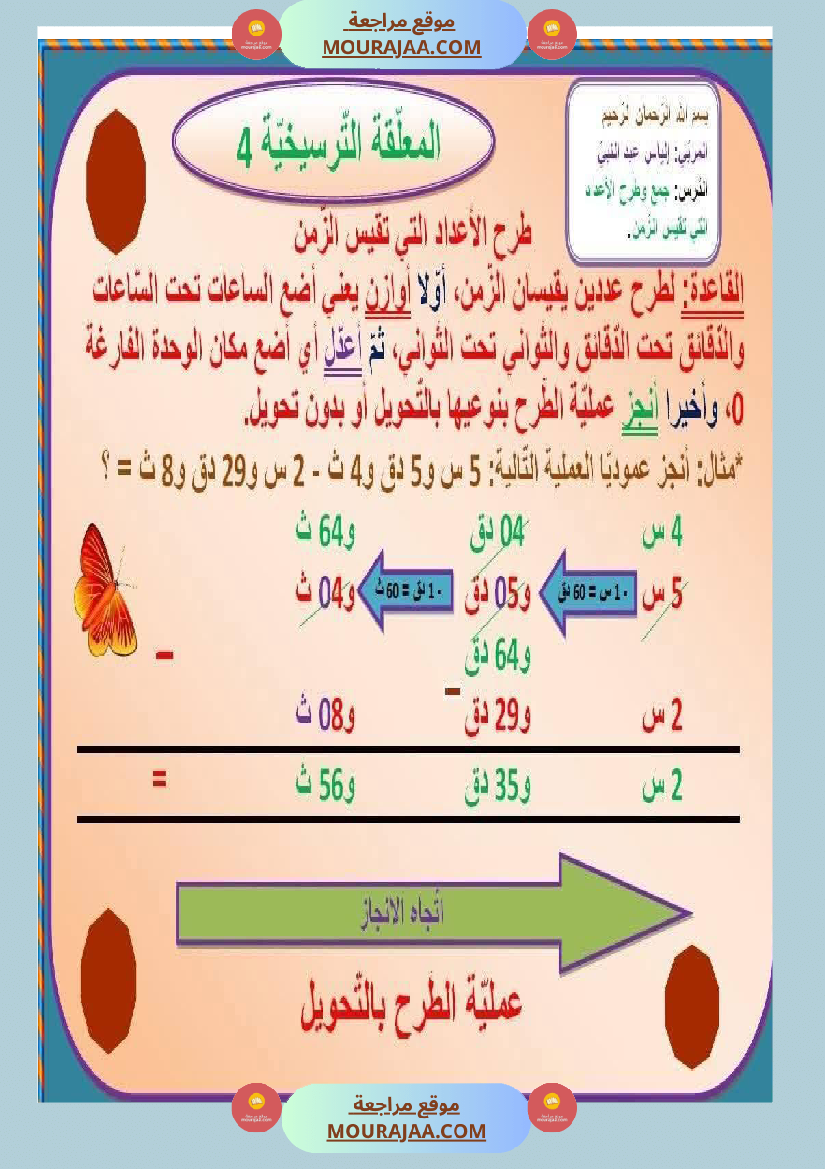 موقع مراجعة
MOURAJAA.COM
بسم الله الرّحمان الرّحيم
المربّي: إلياس عبد النبيّ
الدّرس: جمع وطرح الأعداد
التي تقيس الزّمن.
المعلّقة التّرسيخيّة 4
طرح الأعداد التي تقيس الزّمن
القاعدة: لطرح عددين يقيسان الزّمن، أوّلا أوازن يعني أضع الساعات تحت السّاعات
والدّقائق تحت الدّقائق والثّواني تحت الثّواني، ثمّ أعدّل أي أضع مكان الوحدة الفارغة
0، وأخيرا أنجز عمليّة الطّرح بنوعيها بالتّحويل أو بدون تحويل.
*مثال: أنجز عموديّا العملية التّالية: 5 س و5 دق و4 ث - 2 س و29 دق و8 ث = ؟
4 س 04 دق و64 ث
5 س - 1 س = 60 دق و05 دق - 1 دق = 60 ث و04 ث
و64 دق -
-
2 س و29 دق و08 ث
2 س و35 دق و56 ث =
اتّجاه الانجاز
عمليّة الطّرح بالتّحويل
موقع مراجعة
MOURAJAA.COM